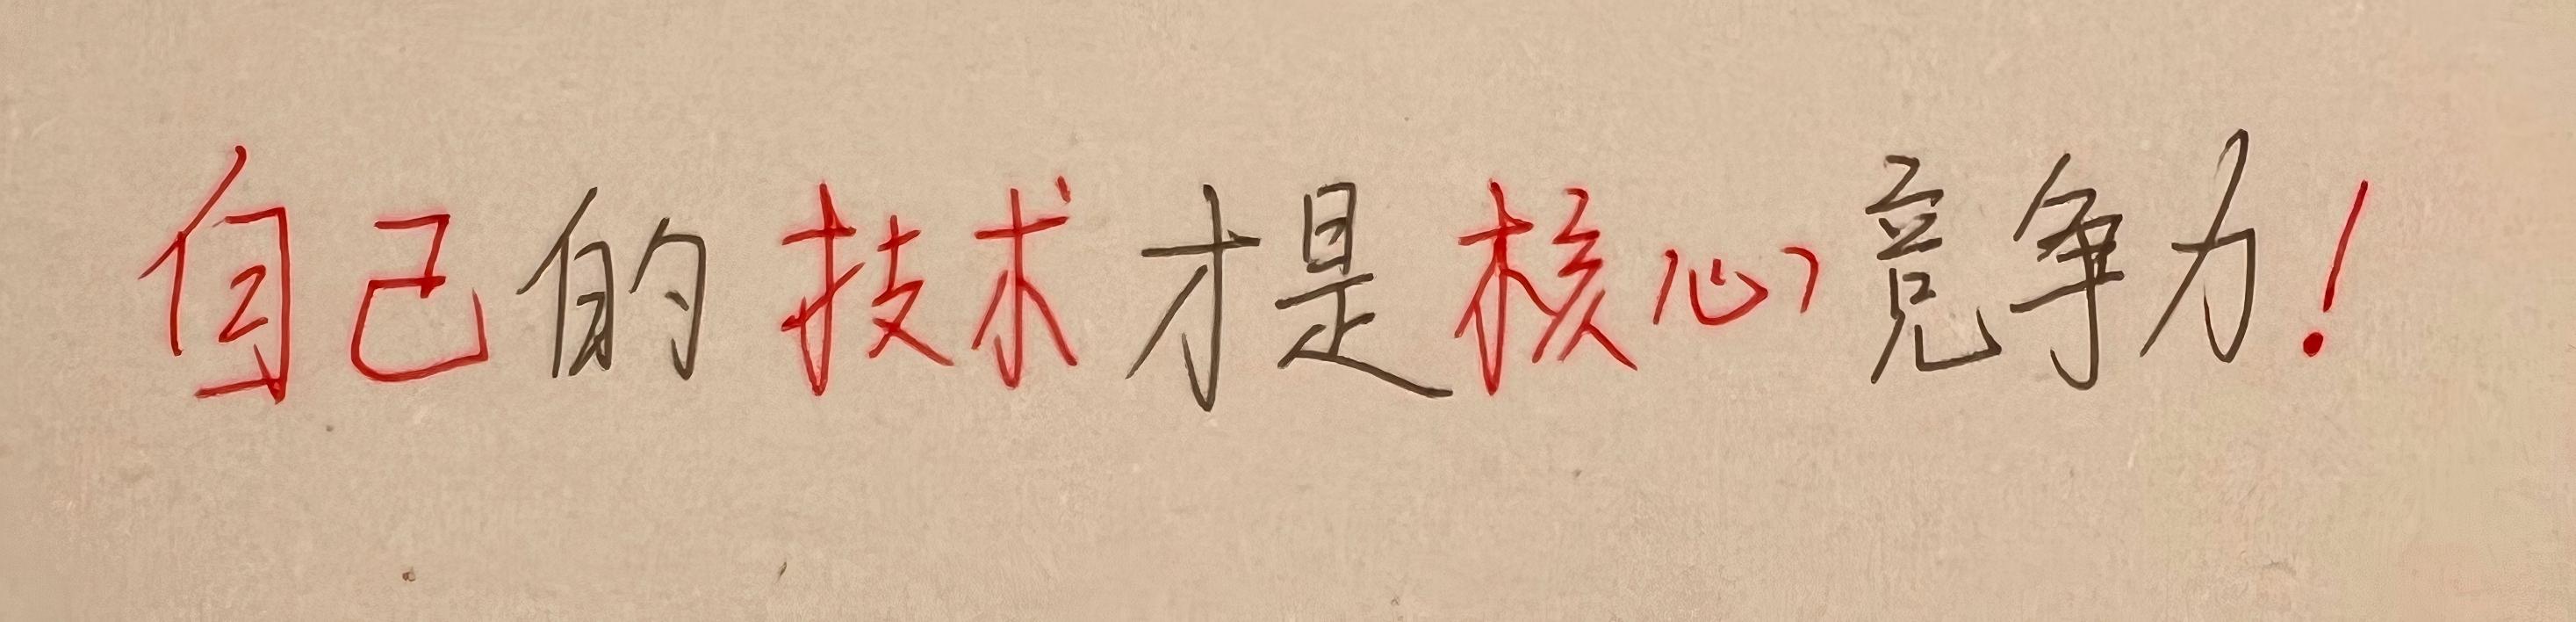 自己的技术才是核心竞争力！